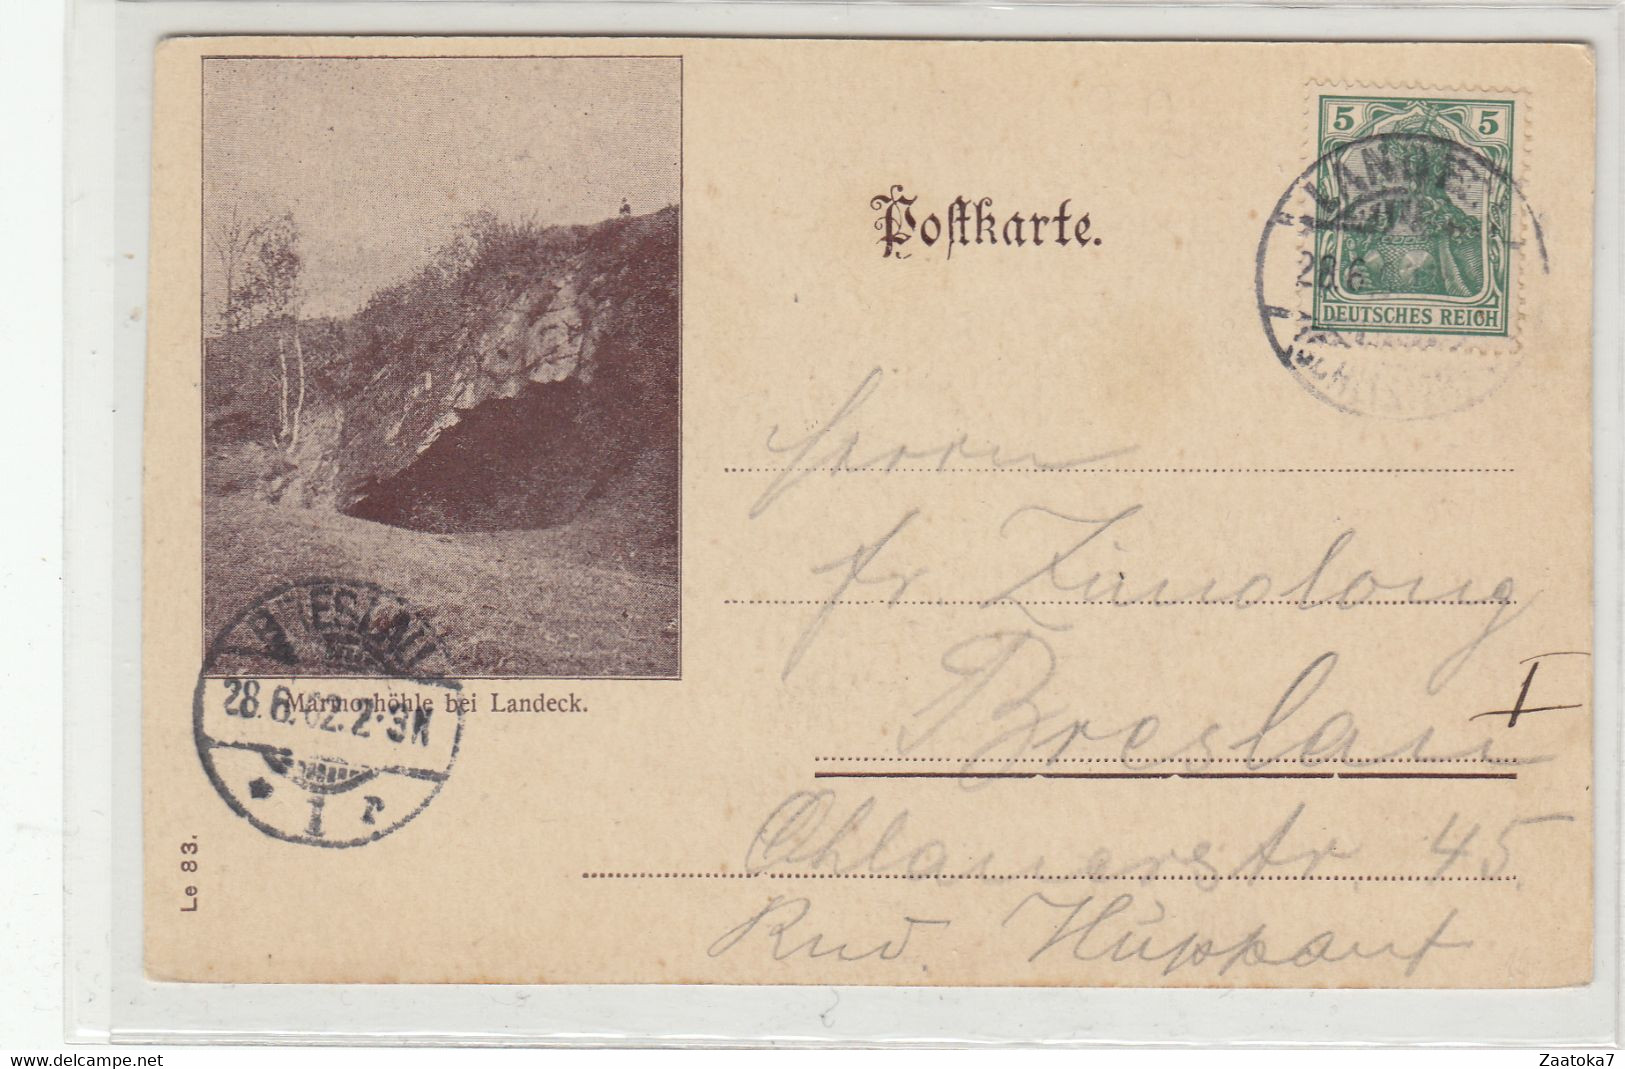 Postkarte.
5 5
DEUTSCHES REICH
LANDE
28.6
Herrn
fr. Zimolong
Breslau I
Ohlauerstr. 45.
Marmorhöhle bei Landeck.
BRESLAU
28.6.02.2-3N
* 1 r
Le 83.
delcampe.net
Zaatoka7